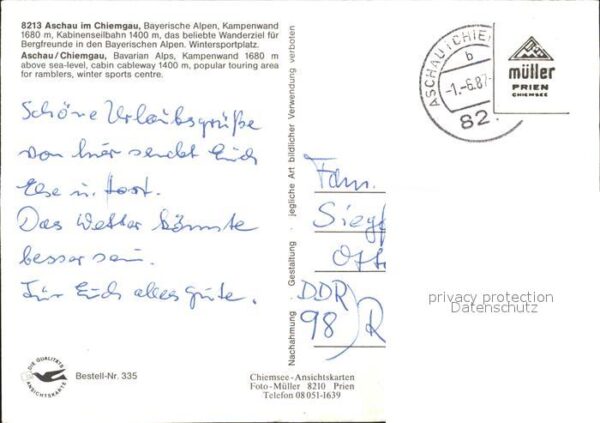 8213 Aschau im Chiemgau, Bayerische Alpen, Kampenwand
1680 m, Kabinenseilbahn 1400 m, das beliebte Wanderziel für
Bergfreunde in den Bayerischen Alpen. Wintersportplatz.
Aschau/Chiemgau, Bavarian Alps, Kampenwand 1680 m
above sea-level, cabin cableway 1400 m, popular touring area
for ramblers, winter sports centre.
Schöne Urlaubsgrüße
von hier sendet Euch
Else u. Horst.
Das Wetter könnte
besser sein.
Für Euch alles gute.
DIE QUALITÄTS
ANSICHTSKARTE
Bestell-Nr. 335
Nachahmung Gestaltung jegliche Art bildlicher Verwendung verboten
ASCHAU (CHIE
b
-1.-6.87
82
müller
PRIEN
CHIEMSEE
Fam.
Siegf
Ott
DDR
98 R
privacy protection
Datenschutz
Chiemsee-Ansichtskarten
Foto-Müller 8210 Prien
Telefon 08051-1639